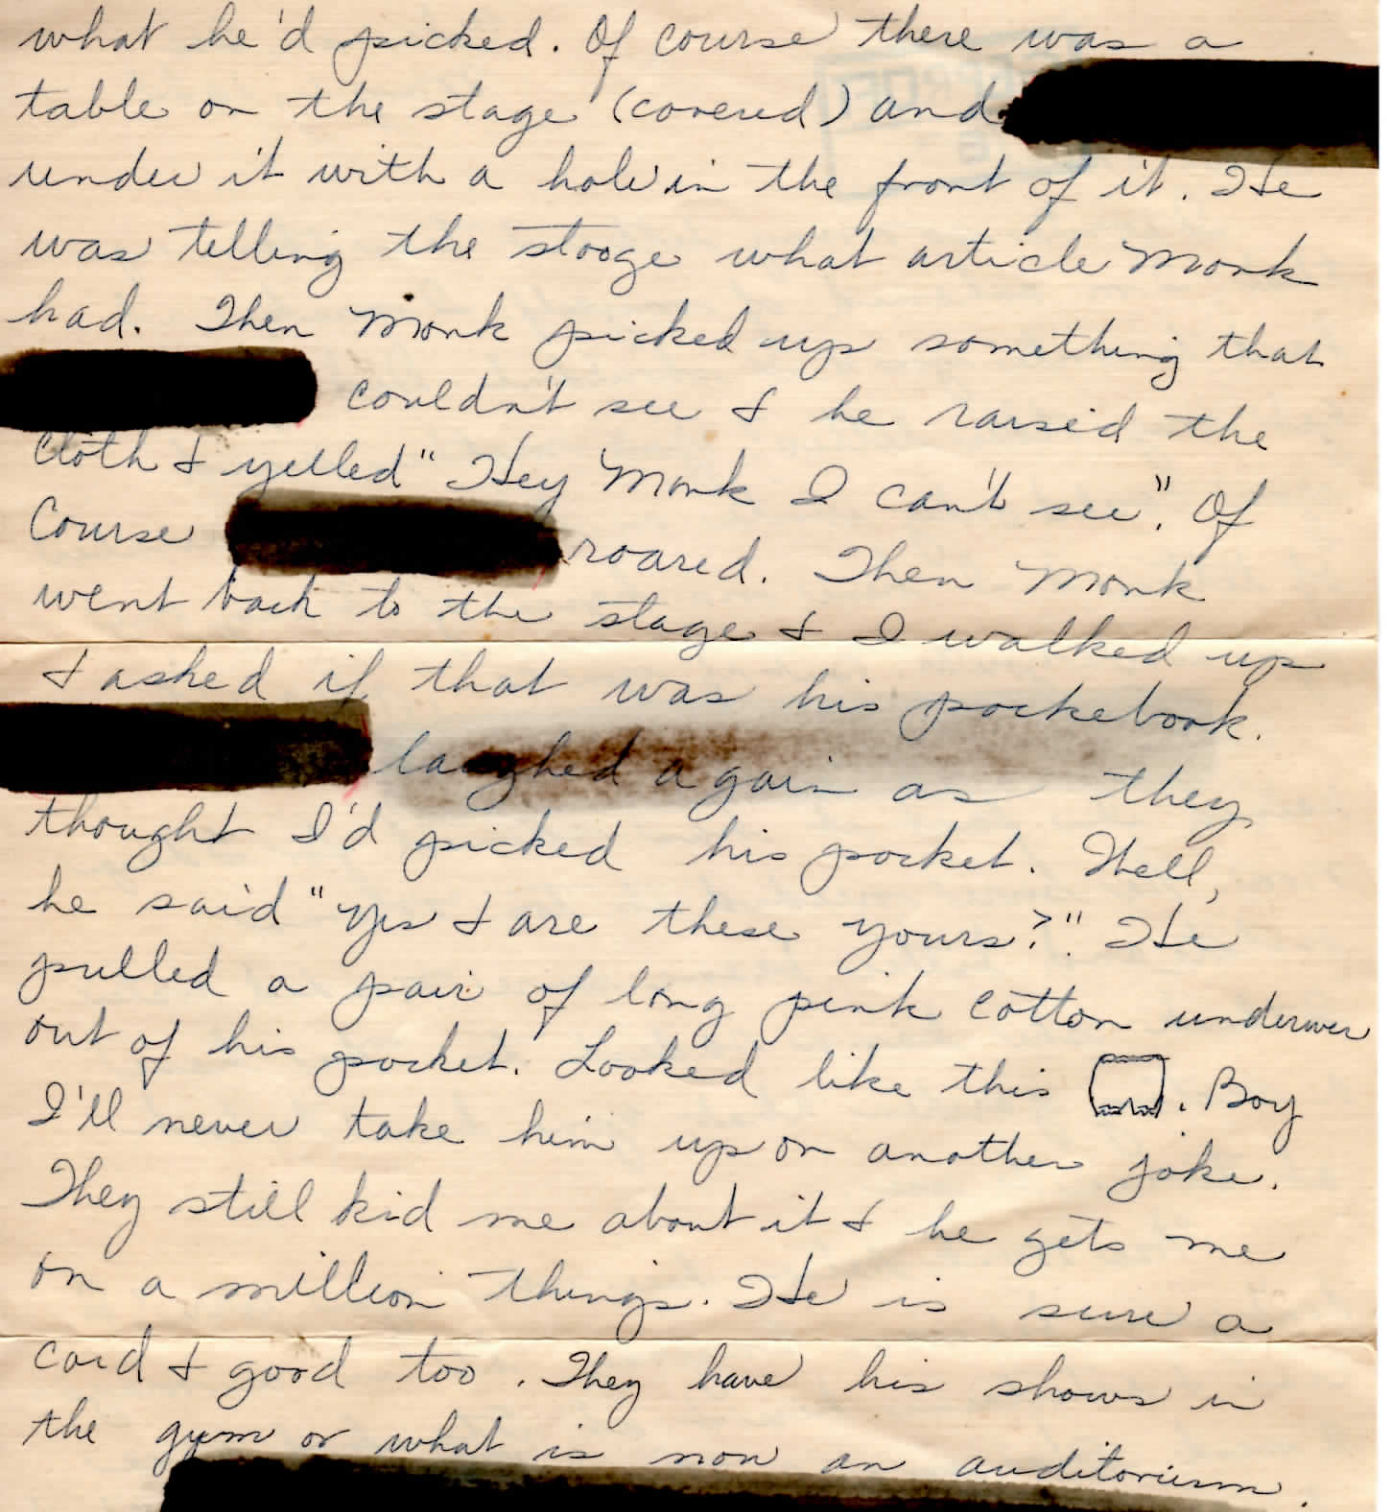 what he'd picked. Of course there was a
table on the stage (covered) and
under it with a hole in the front of it. He
was telling the stooge what article Monk
had. Then Monk picked up something that
couldn't see & he raised the
cloth & yelled "Hey Monk I can't see". Of
Course roared. Then Monk
went back to the stage & I walked up
& asked if that was his pocketbook.
laughed again as they
thought I'd picked his pocket. Well,
he said "Yes & are these yours?". He
pulled a pair of long pink cotton underwer
out of his pocket. Looked like this . Boy
I'll never take him up on another joke.
They still kid me about it & he gets me
on a million things. He is sure a
card & good too. They have his shows in
the gym or what is now an auditorium.